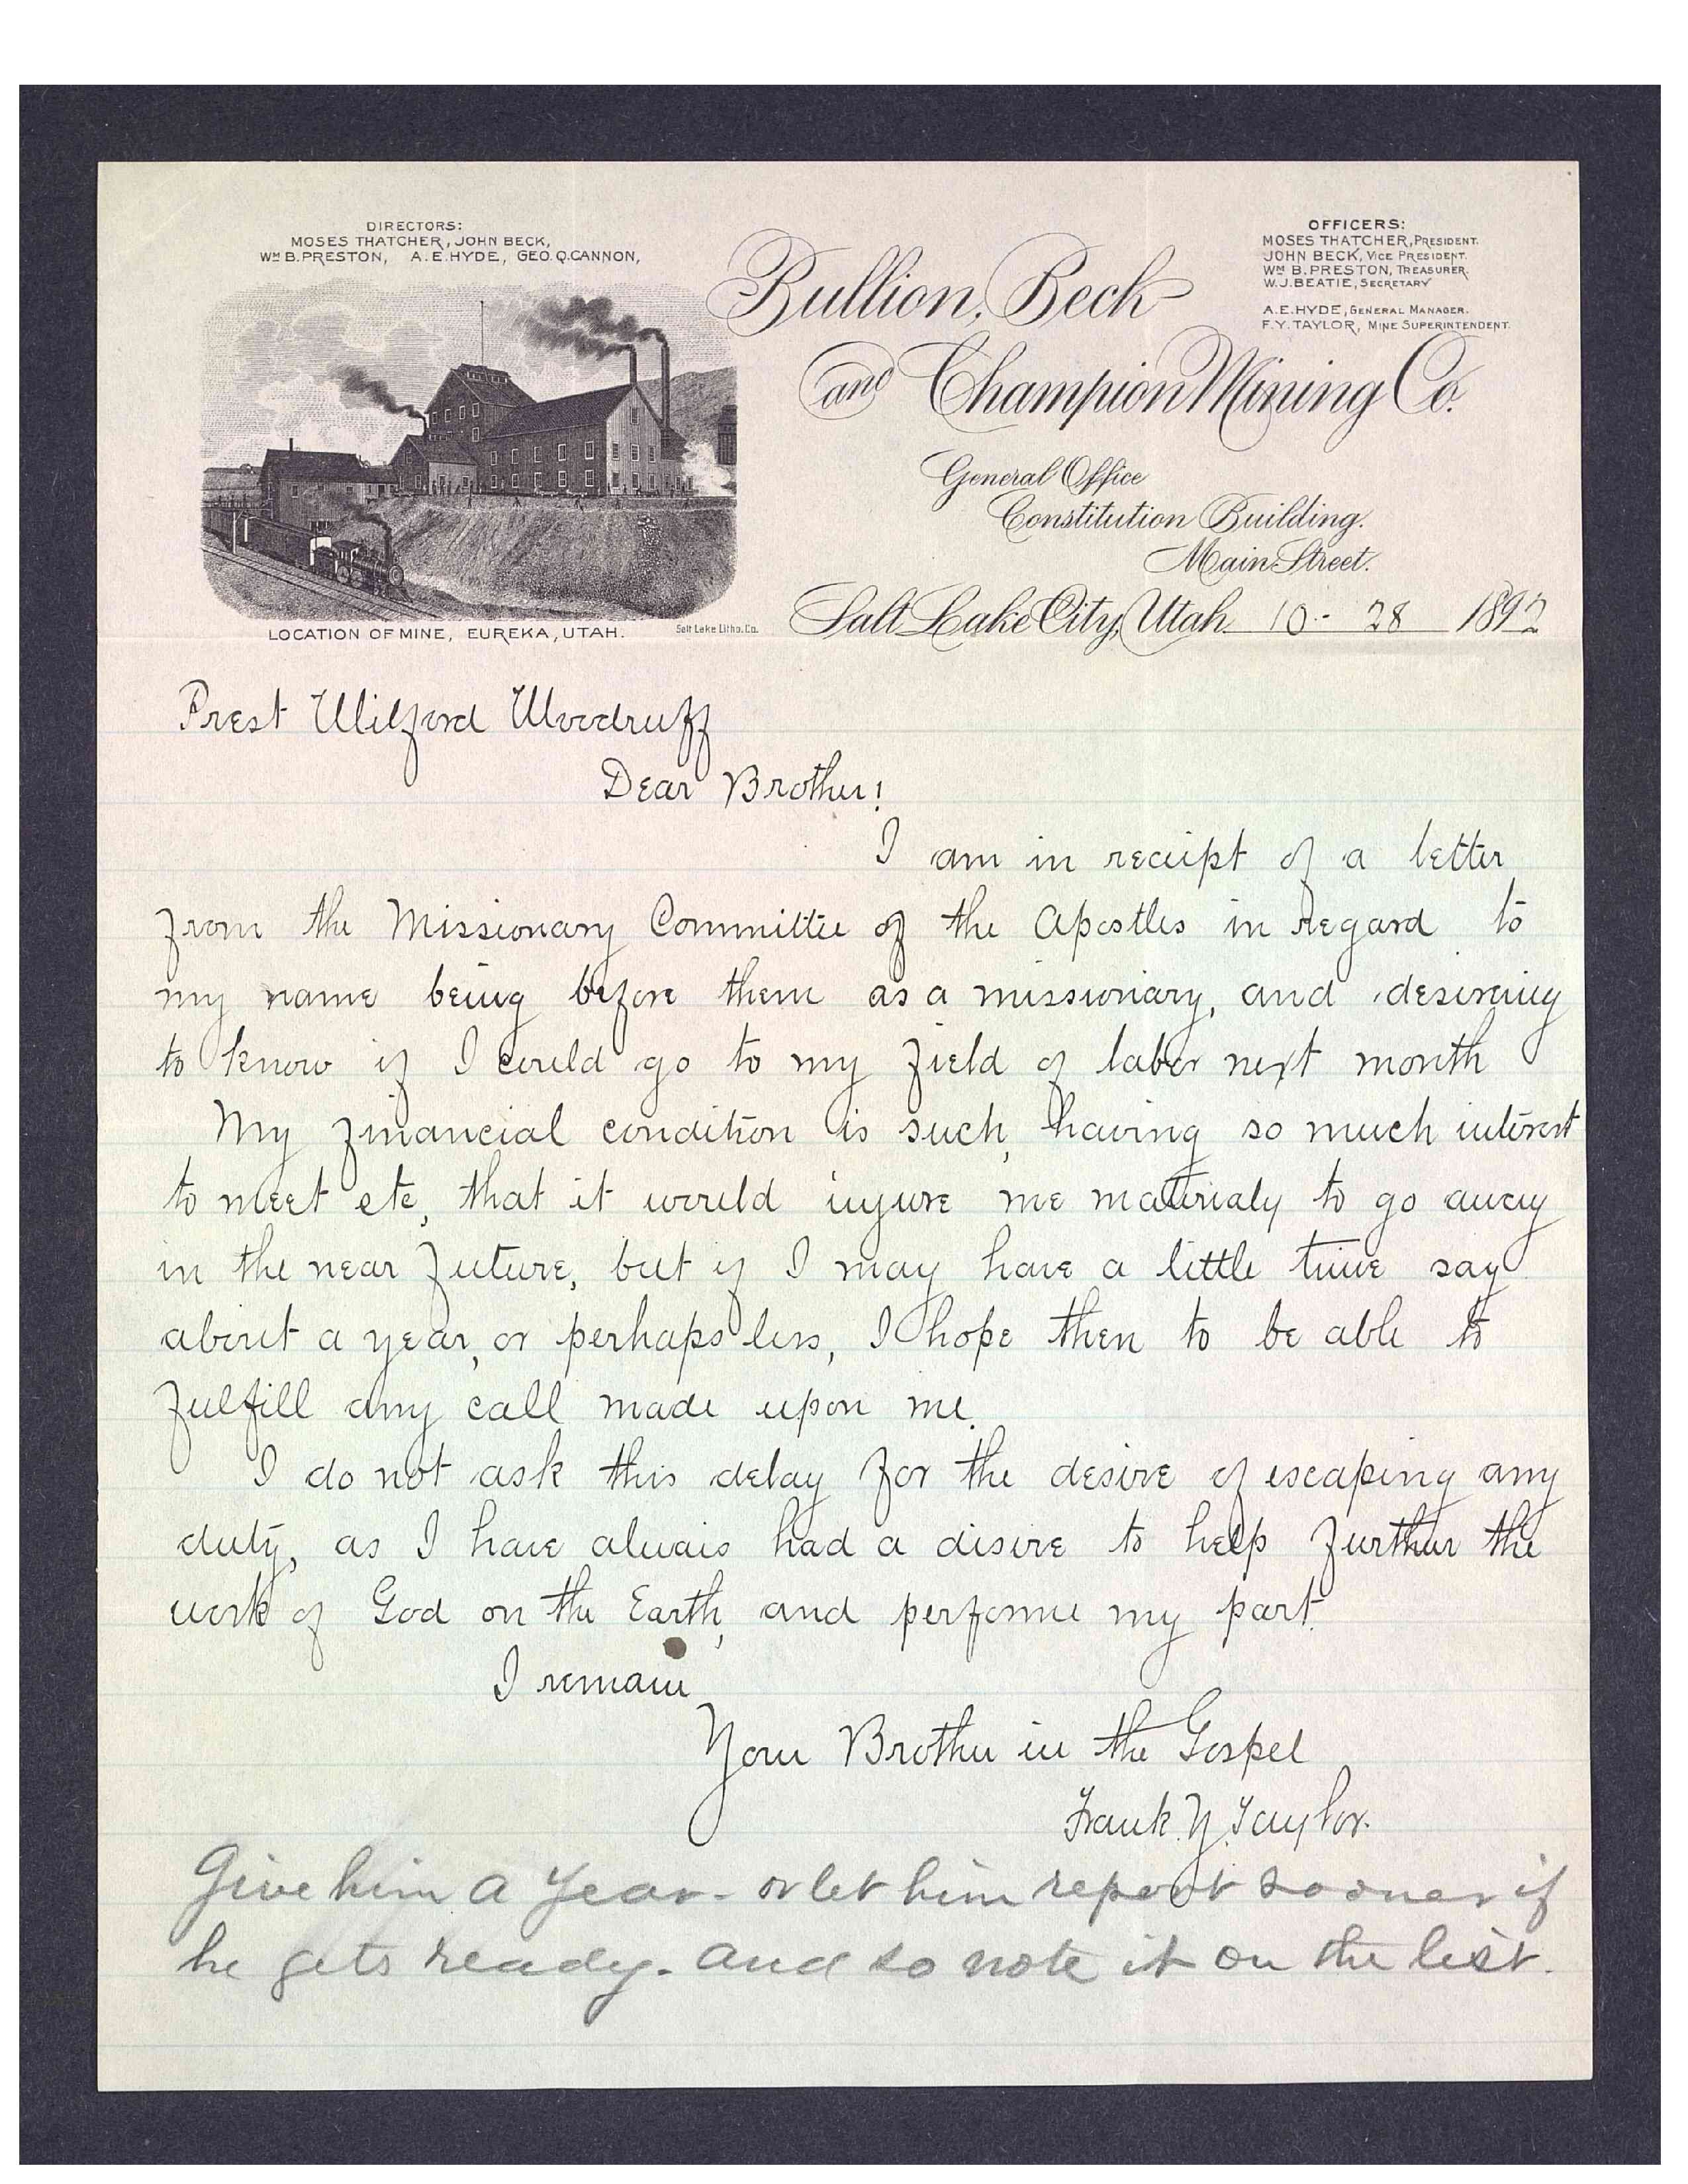 DIRECTORS:
MOSES THATCHER, JOHN BECK,
WM B. PRESTON, A. E. HYDE, GEO. Q. CANNON,
OFFICERS:
MOSES THATCHER, PRESIDENT.
JOHN BECK, VICE PRESIDENT.
WM B. PRESTON, TREASURER.
W. J. BEATIE, SECRETARY
A. E. HYDE, GENERAL MANAGER.
F. Y. TAYLOR, MINE SUPERINTENDENT.
Bullion, Beck
and Champion Mining Co.
General Office
Constitution Building.
Main Street.
LOCATION OF MINE, EUREKA, UTAH.
Salt Lake Litho. Co.
Salt Lake City, Utah 10 - 28 1897
Prest Wilford Woodruff
Dear Brother!
I am in receipt of a letter
from the Missionary Committee of the Apostles in Regard to
my name being before them as a missionary, and desireing
to know if I could go to my field of labor next month
My financial condition is such, having so much interest
to meet etc, that it would injure me materialy to go away
in the near future, but if I may have a little time say
about a year, or perhaps less, I hope then to be able to
fulfill any call made upon me.
I do not ask this delay for the desire of escaping any
duty, as I have alwais had a disire to help further the
work of God on the Earth, and performe my part.
I remain
Your Brother in the Gospel
Frank Y. Taylor.
Give him a year - or let him report sooner if
he gets ready. And so note it on the list.